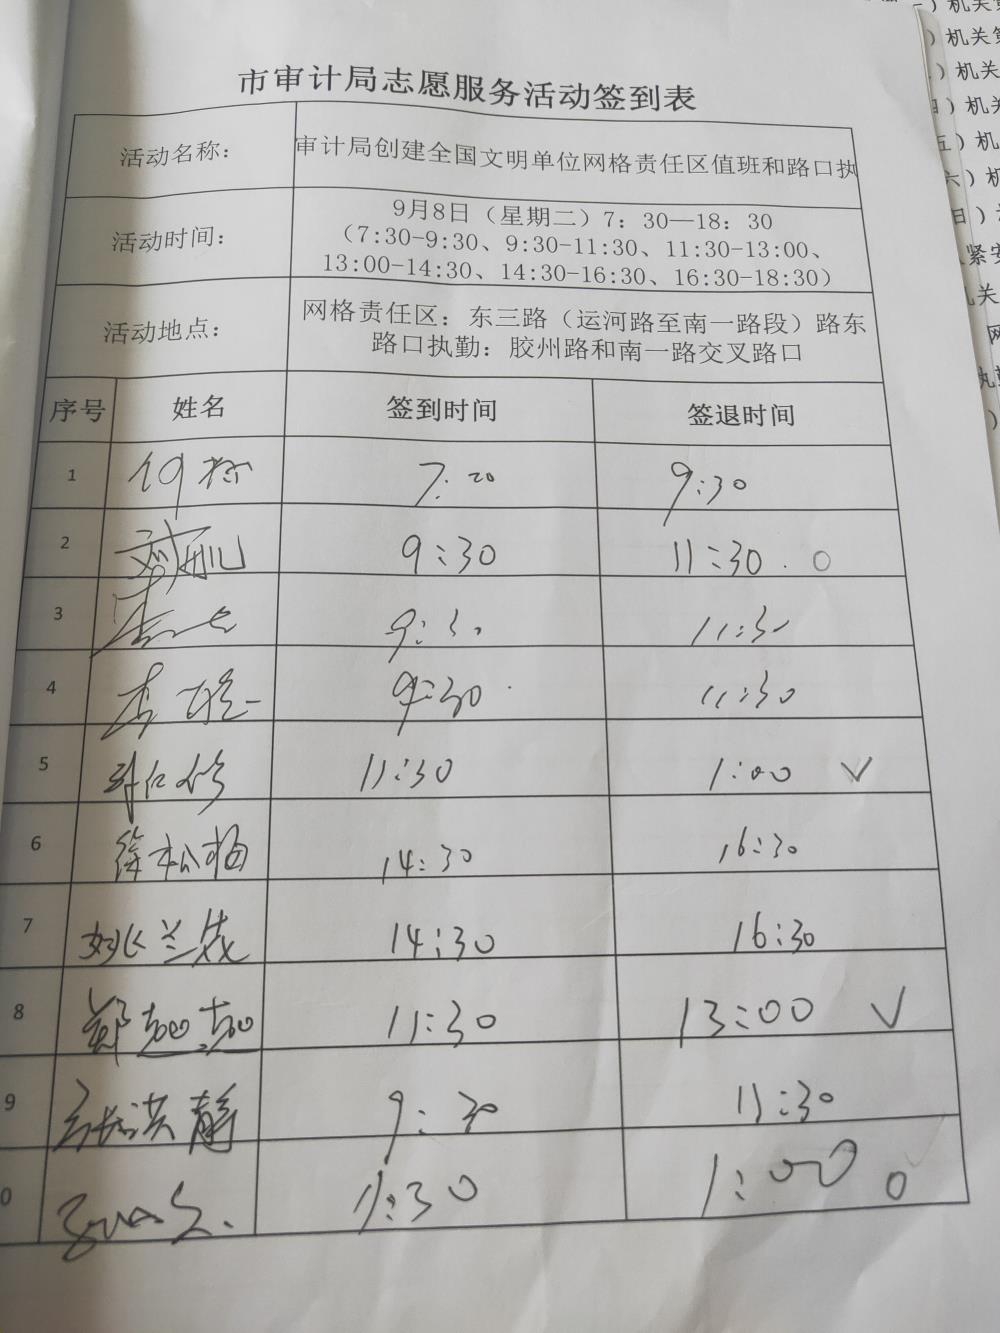 市审计局志愿服务活动签到表
活动名称：
审计局创建全国文明单位网格责任区值班和路口执
活动时间：
9月8日（星期二）7：30—18：30
（7:30-9:30、9:30-11:30、11:30-13:00、
13:00-14:30、14:30-16:30、16:30-18:30）
活动地点：
网格责任区：东三路（运河路至南一路段）路东
路口执勤：胶州路和南一路交叉路口
序号 姓名 签到时间 签退时间
1 9:30
2 9:30 11:30
3 9:30 11:30
4 9:30 11:30
5 11:30 1:00 √
6 徐松梅 14:30 16:30
7 姚兰茂 14:30 16:30
8 郑茹茹 11:30 13:00 √
9 洪静 9:30 11:30
0 11:30 1:00
）机关
）机关
）机关
）机关
五）机
六）机
日）
紧安
机关
网